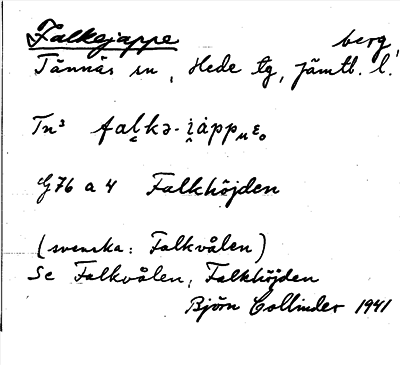 Falkejappe berg,
Tännäs sn, Hede tg, Jämtl. l.
Tn³ falkə-i̯àppₙε。
G76 a 4 Falkhöjden
(svenska: Falkvålen)
Se Falkvålen, Falkhöjden
Björn Collinder 1941